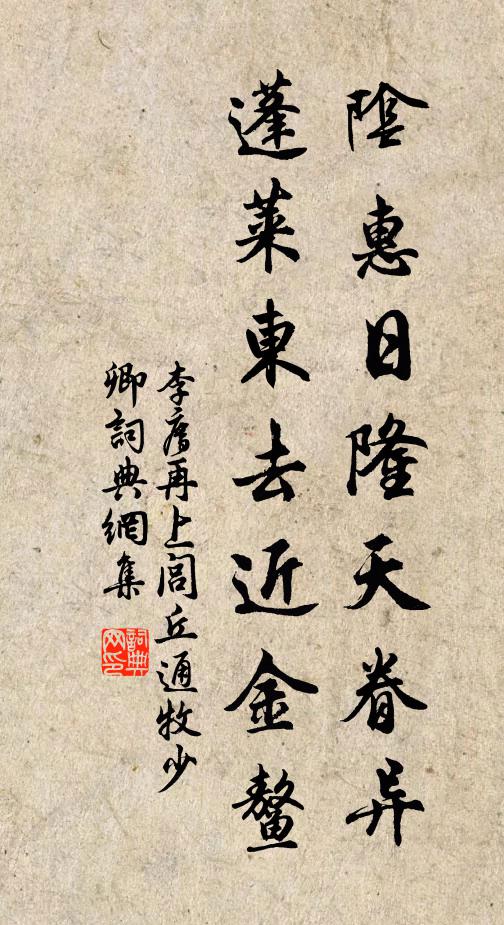 陰惠日隆天眷异
蓬莱東去近金鰲
李廌再上閭丘通牧少
卿詞典網集
詞典网印